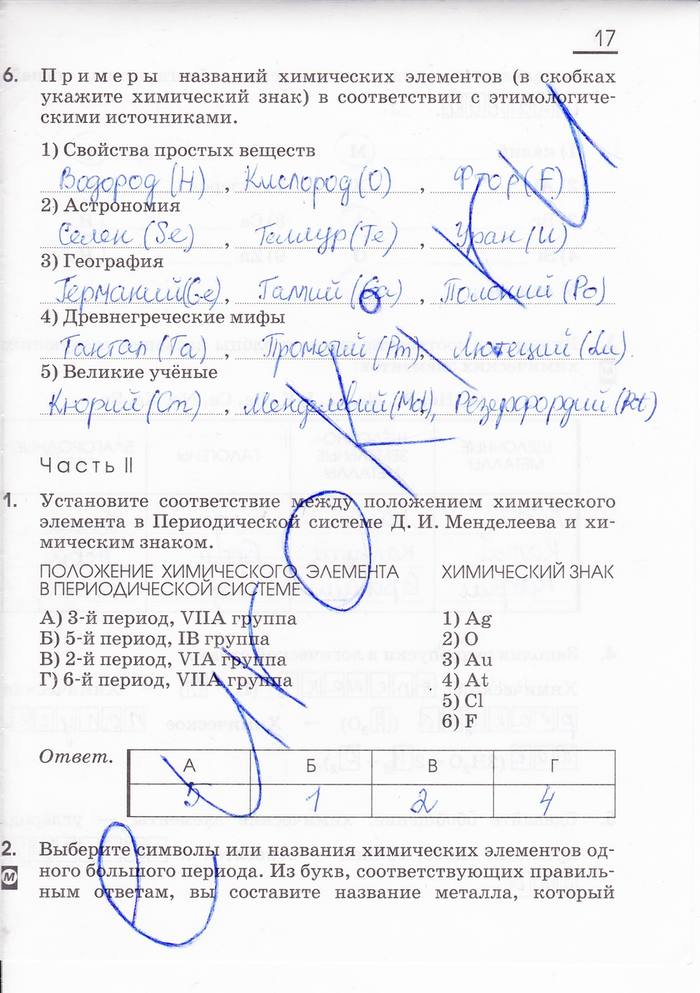 17
6. Примеры названий химических элементов (в скобках
укажите химический знак) в соответствии с этимологиче-
скими источниками.
1) Свойства простых веществ
Водород (H), Кислород (O), Фтор (F)
2) Астрономия
Селен (Se), Теллур (Te), Уран (U)
3) География
Германий (Ge), Галлий (Ga), Полоний (Po)
4) Древнегреческие мифы
Тантал (Ta), Прометий (Pm), Лютеций (Lu).
5) Великие учёные
Кюрий (Cm), Менделевий (Md), Резерфордий (Rf)
Часть II
1. Установите соответствие между положением химического
элемента в Периодической системе Д. И. Менделеева и хи-
мическим знаком.
ПОЛОЖЕНИЕ ХИМИЧЕСКОГО ЭЛЕМЕНТА ХИМИЧЕСКИЙ ЗНАК
В ПЕРИОДИЧЕСКОЙ СИСТЕМЕ
А) 3-й период, VIIA группа 1) Ag
Б) 5-й период, IB группа 2) O
В) 2-й период, VIA группа 3) Au
Г) 6-й период, VIIA группа 4) At
5) Cl
6) F
Ответ. А Б В Г
5 1 2 4
2. Выберите символы или названия химических элементов од-
М ного большого периода. Из букв, соответствующих правиль-
ным ответам, вы составите название металла, который